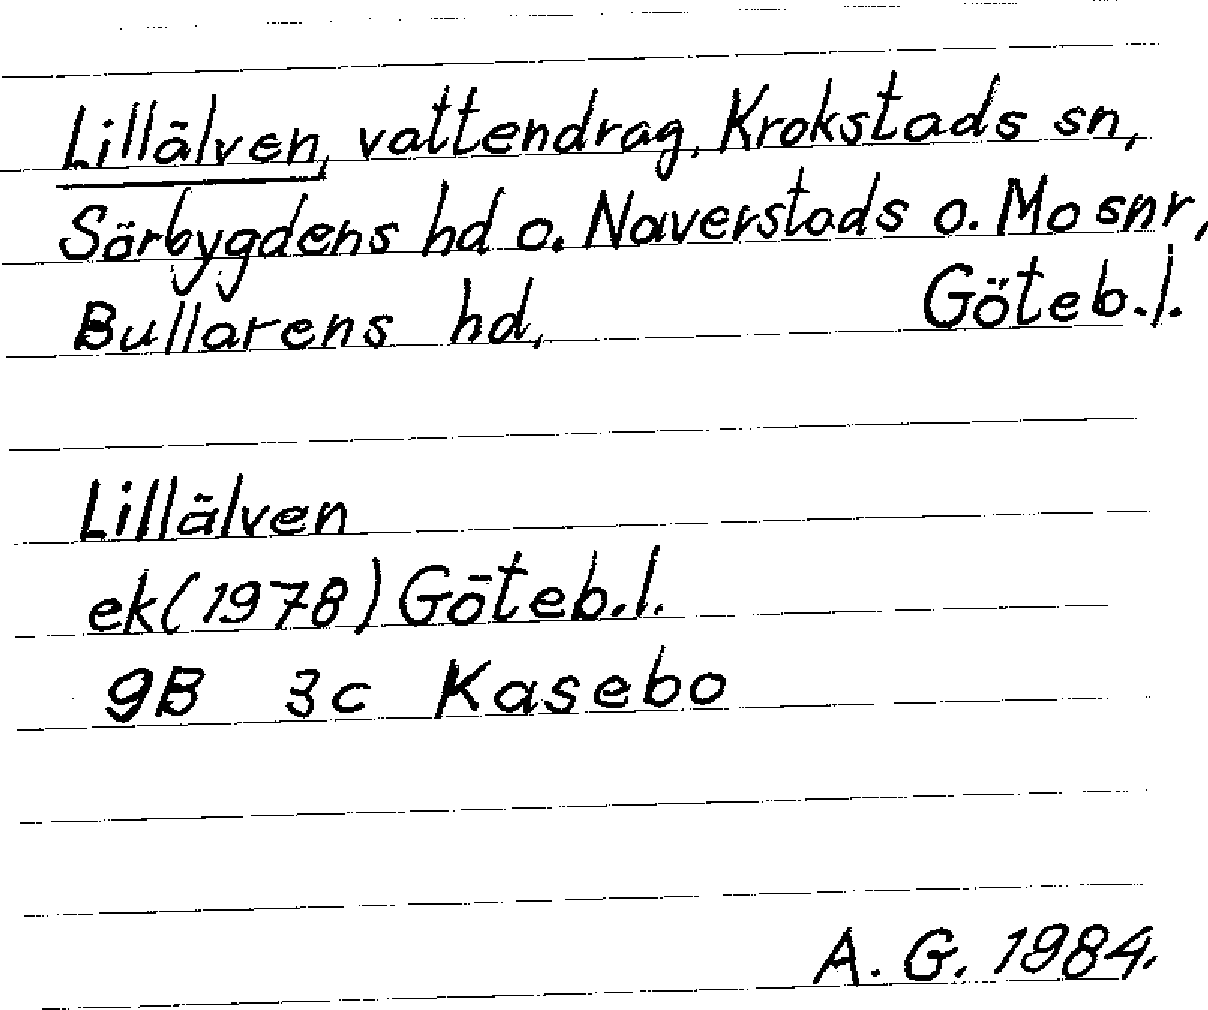 Lillälven, vattendrag, Krokstads sn,
Sörbygdens hd o. Naverstads o. Mo snr,
Bullarens hd, Göteb.l.
Lillälven
ek(1978) Göteb.l.
9B 3c Kasebo
A. G. 1984.